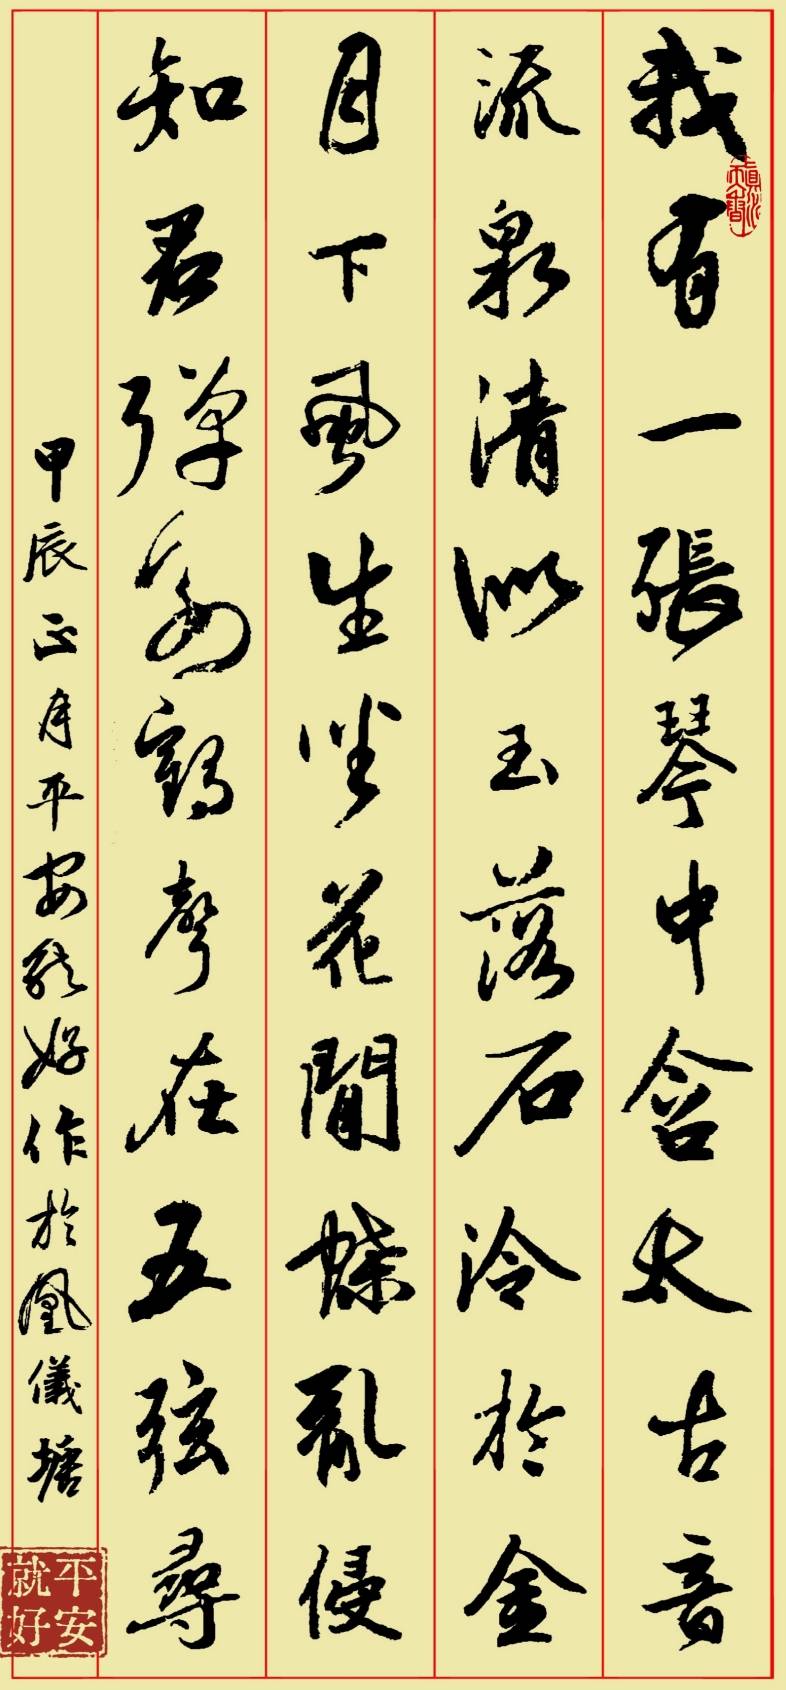 我有一張琴中含太古音
流泉清似玉落石冷於金
月下風生坐花間蝶亂侵
知君彈別鶴聲在五弦尋
甲辰正月平安就好作於鳳儀塘
平安就好